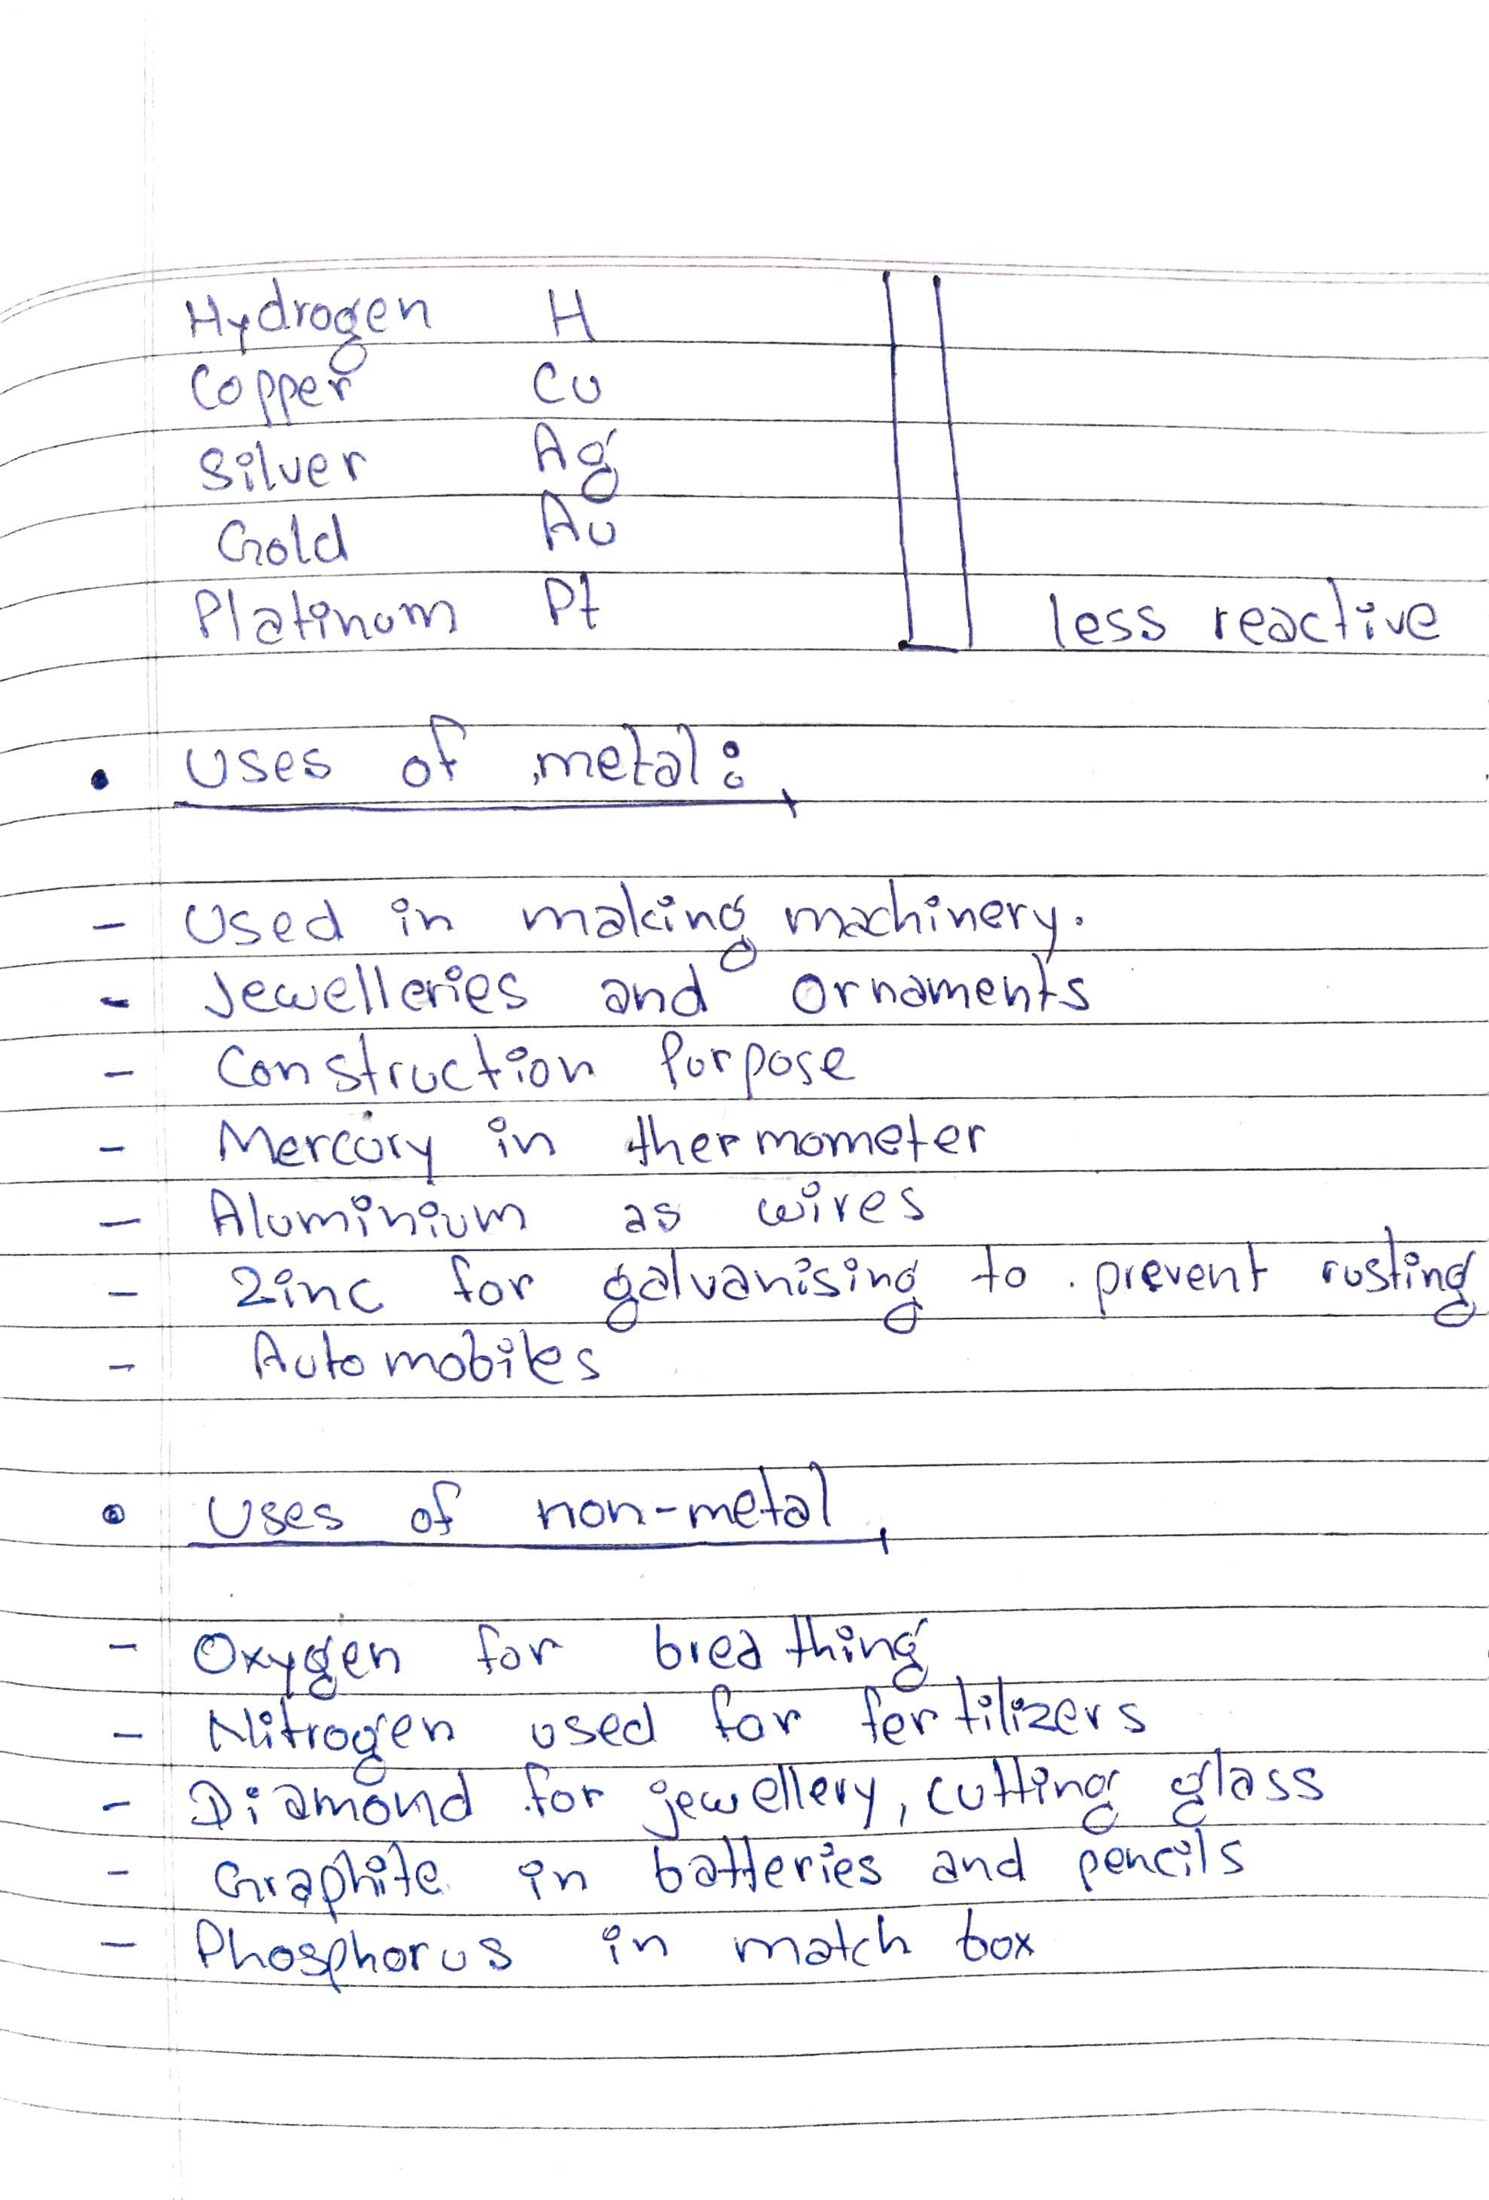 Hydrogen H
Copper Cu
Silver Ag
Gold Au
Platinum Pt less reactive
• Uses of metal:
- Used in making machinery.
- Jewelleries and Ornaments
- Construction Purpose
- Mercury in thermometer
- Aluminium as wires
- Zinc for galvanising to prevent rusting
- Automobiles
• Uses of non-metal
- Oxygen for breathing
- Nitrogen used for fertilizers
- Diamond for jewellery, cutting glass
- Graphite in batteries and pencils
- Phosphorus in match box